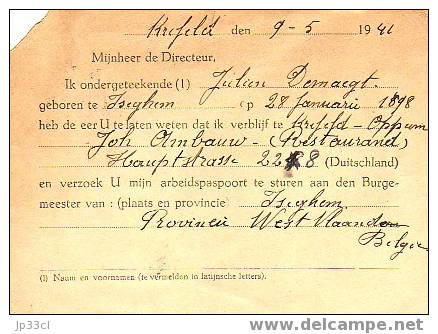 Krefeld den 9-5 1941
Mijnheer de Directeur,
Ik ondergeteekende (1) Julien Demaegt.
geboren te Iseghem op 28 Januarii 1898
heb de eer U te laten weten dat ik verblijf te Krefeld-Oppum
Joh Ambauw-(Restaurand)
Hauptstrasse 2288 (Duitschland)
en verzoek U mijn arbeidspaspoort te sturen aan den Burge-
meester van : (plaats en provincie) Iseghem.
Provincie West Vlaanderen
Belgie
(1) Naam en voornamen (te vermelden in latijnsche letters).
jp33cl
delcampe.net